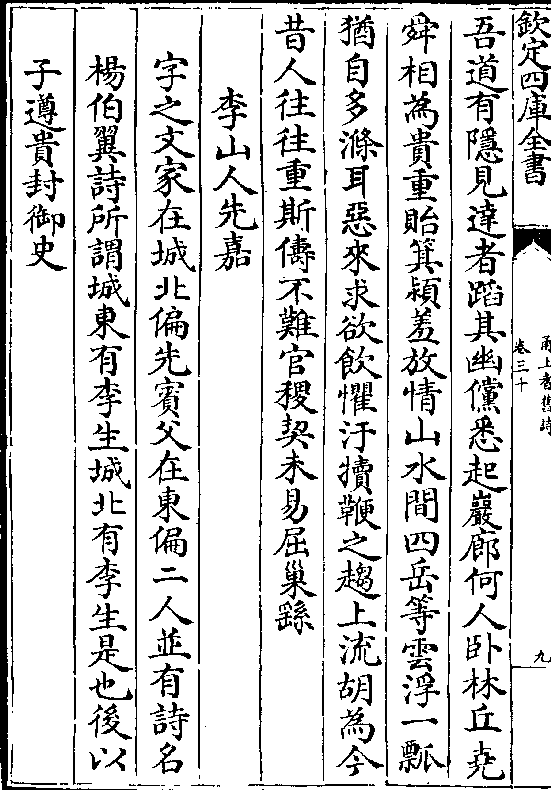 欽定四庫全書
甬上耆舊詩
卷三十
九
吾道有隱見達者蹈其幽儻悉起巖廊何人卧林丘堯
舜相為貴重貽箕潁羞放情山水間四岳等雲浮一瓢
猶自多滌耳惡來求欲飲懼汙犢鞭之趨上流胡為今
昔人往往重斯儔不難官稷契未易屈巢繇
李山人先嘉
字之文家在城北偏先賓父在東偏二人並有詩名
楊伯翼詩所謂城東有李生城北有李生是也後以
子遵貴封御史